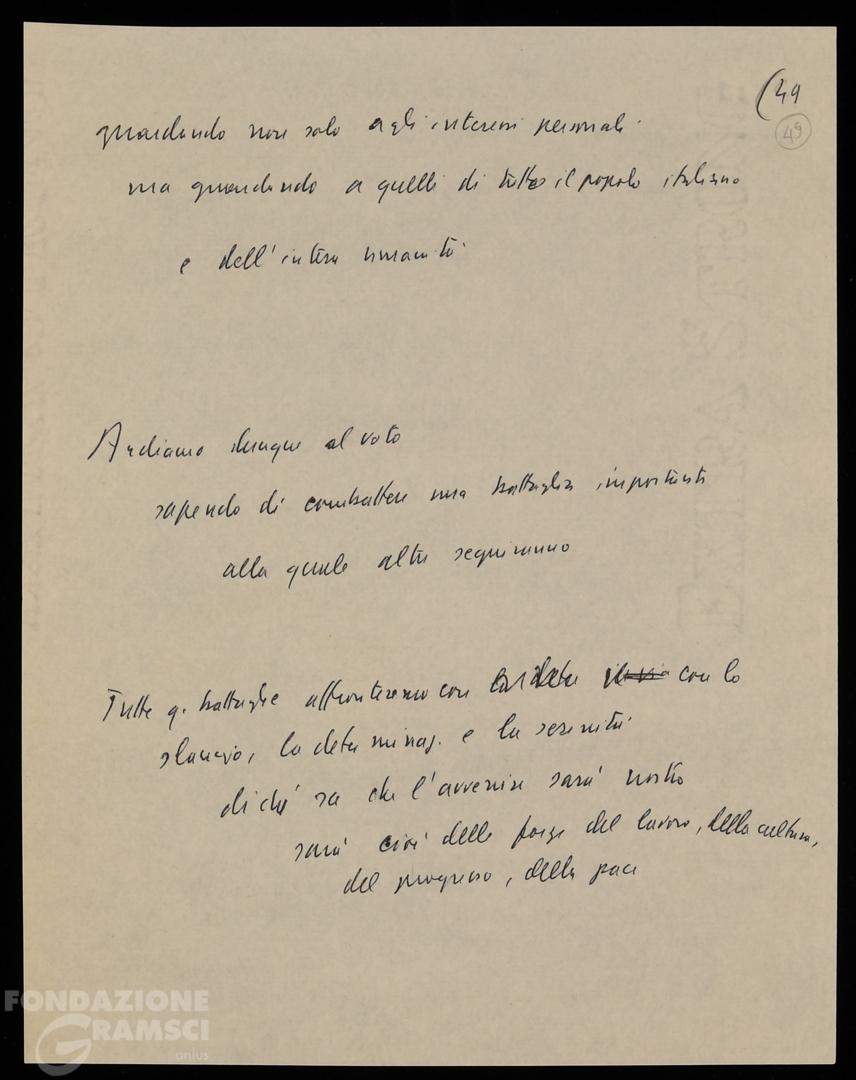 (49
49
guardando non solo agli interessi personali
ma guardando a quelli di tutto il popolo italiano
e dell'intera umanità
Andiamo dunque al voto
sapendo di combattere una battaglia importante
alla quale altre seguiranno
Tutte q. battaglie affronteremo con con lo
slancio, la determinaz. e la serenità
di chi sa che l'avvenire sarà nostro
sarà cioè delle forze del lavoro, della cultura,
del progresso, della pace
FONDAZIONE
GRAMSCI
onlus